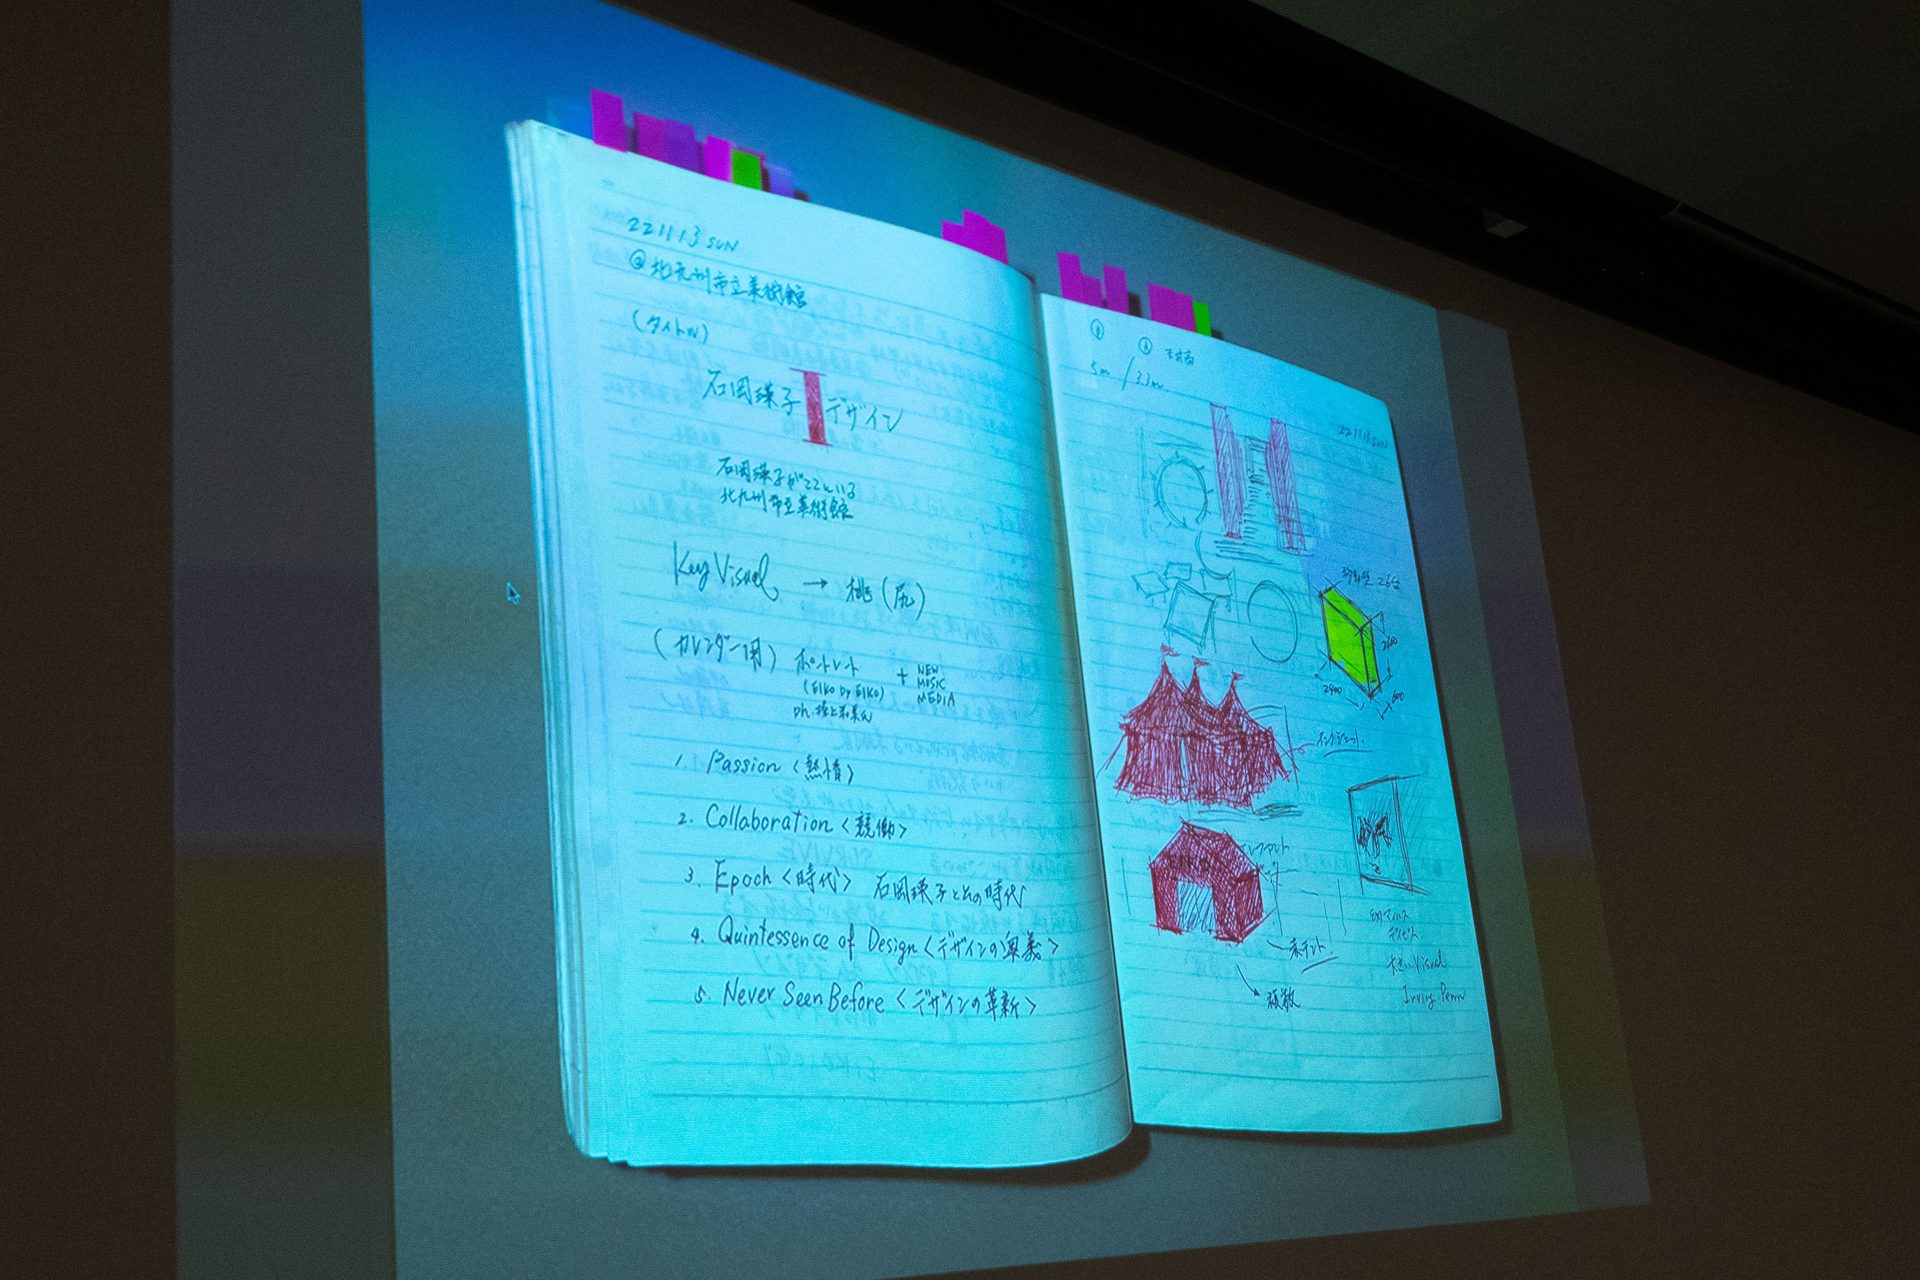 221113 SUN
@北九州市立美術館
(タイトル)
石岡瑛子 I デザイン
石岡瑛子がここにいる
北九州市立美術館
Key Visual → 桃(尻)
(カレンダー用) ポートレート + NEW MUSIC MEDIA
(EIKO by EIKO)
1. Passion〈熱情〉
2. Collaboration〈競働〉
3. Epoch〈時代〉 石岡瑛子とその時代
4. Quintessence of Design〈デザインの奥義〉
5. Never Seen Before〈デザインの革新〉
5m / 3.3m
221113 SUN
可動壁 26台
2600
2400
600
インクジェット
エレファント
赤テント!
複数
大きい Visual
Irving Penn